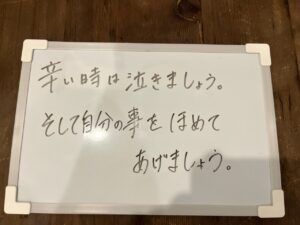 辛い時は泣きましょう。
そして自分の事をほめて
あげましょう。